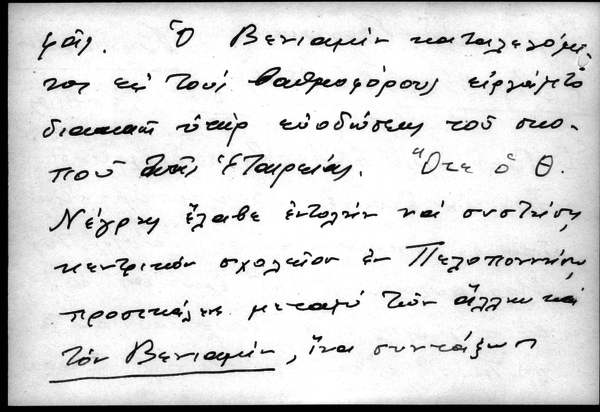 φάς. Ὁ Βενιαμὶν καταλεγόμε-
νος εἰς τοὺς βαθμοφόρους εἰργάζετο
διαρκῶς ὑπὲρ εὐοδώσεως τοῦ σκο-
ποῦ τῆς Ἑταιρείας. Ὅτε ὁ Θ.
Νέγρης ἔλαβε ἐντολὴν νὰ συστήσῃ
κεντρικὸν σχολεῖον ἐν Πελοποννήσῳ
προσεκάλεσε μεταξὺ τῶν ἄλλων καὶ
τὸν Βενιαμὶν, ἵνα συντάξῃ